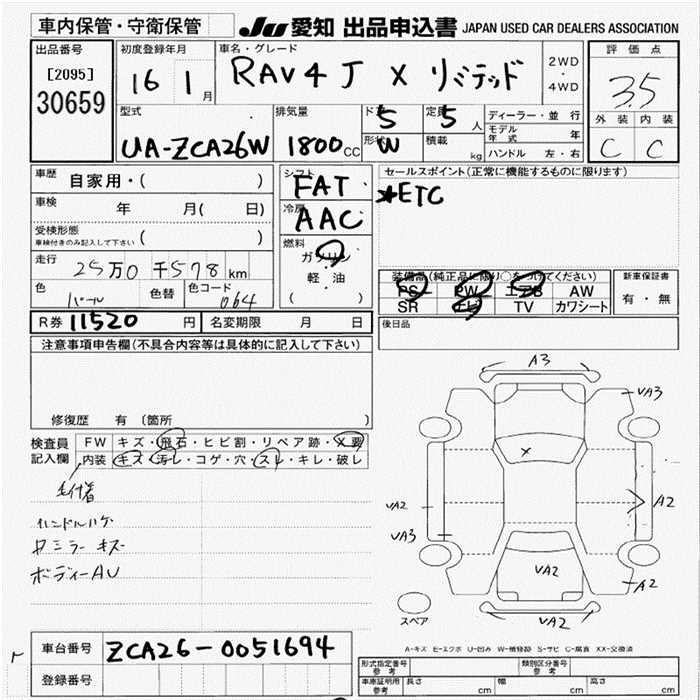 車内保管・守衛保管
JU 愛知 出品申込書 JAPAN USED CAR DEALERS ASSOCIATION
出品番号
[2095]
30659
初度登録年月
16 1月
車名・グレード
RAV4 J X リミテッド
2WD
・
4WD
評価点
3.5
外装 内装
C C
型式
UA-ZCA26W
排気量
1800CC
ドア 5
形状 W
定員 5人
積載 kg
ディーラー・並行
モデル年式 年
ハンドル 左・右
車歴 自家用・( )
車検 年 月( 日)
受検形態
車検付きのみ記入して下さい ( )
走行 25万0千578km
色 パール 色替 色コード 064
シフト
FAT
冷房
AAC
燃料
ガソリン
・
軽・油
( )
セールスポイント(正常に機能するものに限ります)
*ETC
装備品(純正品に限り○をつけてください)
PS PW エアB AW
SR ナビ TV カワシート
新車保証書
有・無
後日品
R券 11520 円 名変期限 月 日
注意事項申告欄(不具合内容等は具体的に記入して下さい)
修復歴 有 〔箇所 〕
検査員
記入欄
FW キズ・飛石・ヒビ割・リペア跡・X要
内装 キズ・汚レ・コゲ・穴・スレ・キレ・破レ
ハンドルハゲ
ボディーAU
A3
VA3
X
VA2
VA3
A2
VA2
A2
VA2
スペア
A-キズ E-エクボ U-凹み W-補修跡 S-サビ C-腐食 XX-交換済
車台番号 ZCA26-0051694
登録番号
型式指定番号
参考
類別区分番号
参考
車庫証明用
参考
長さ cm 幅 cm 高さ cm